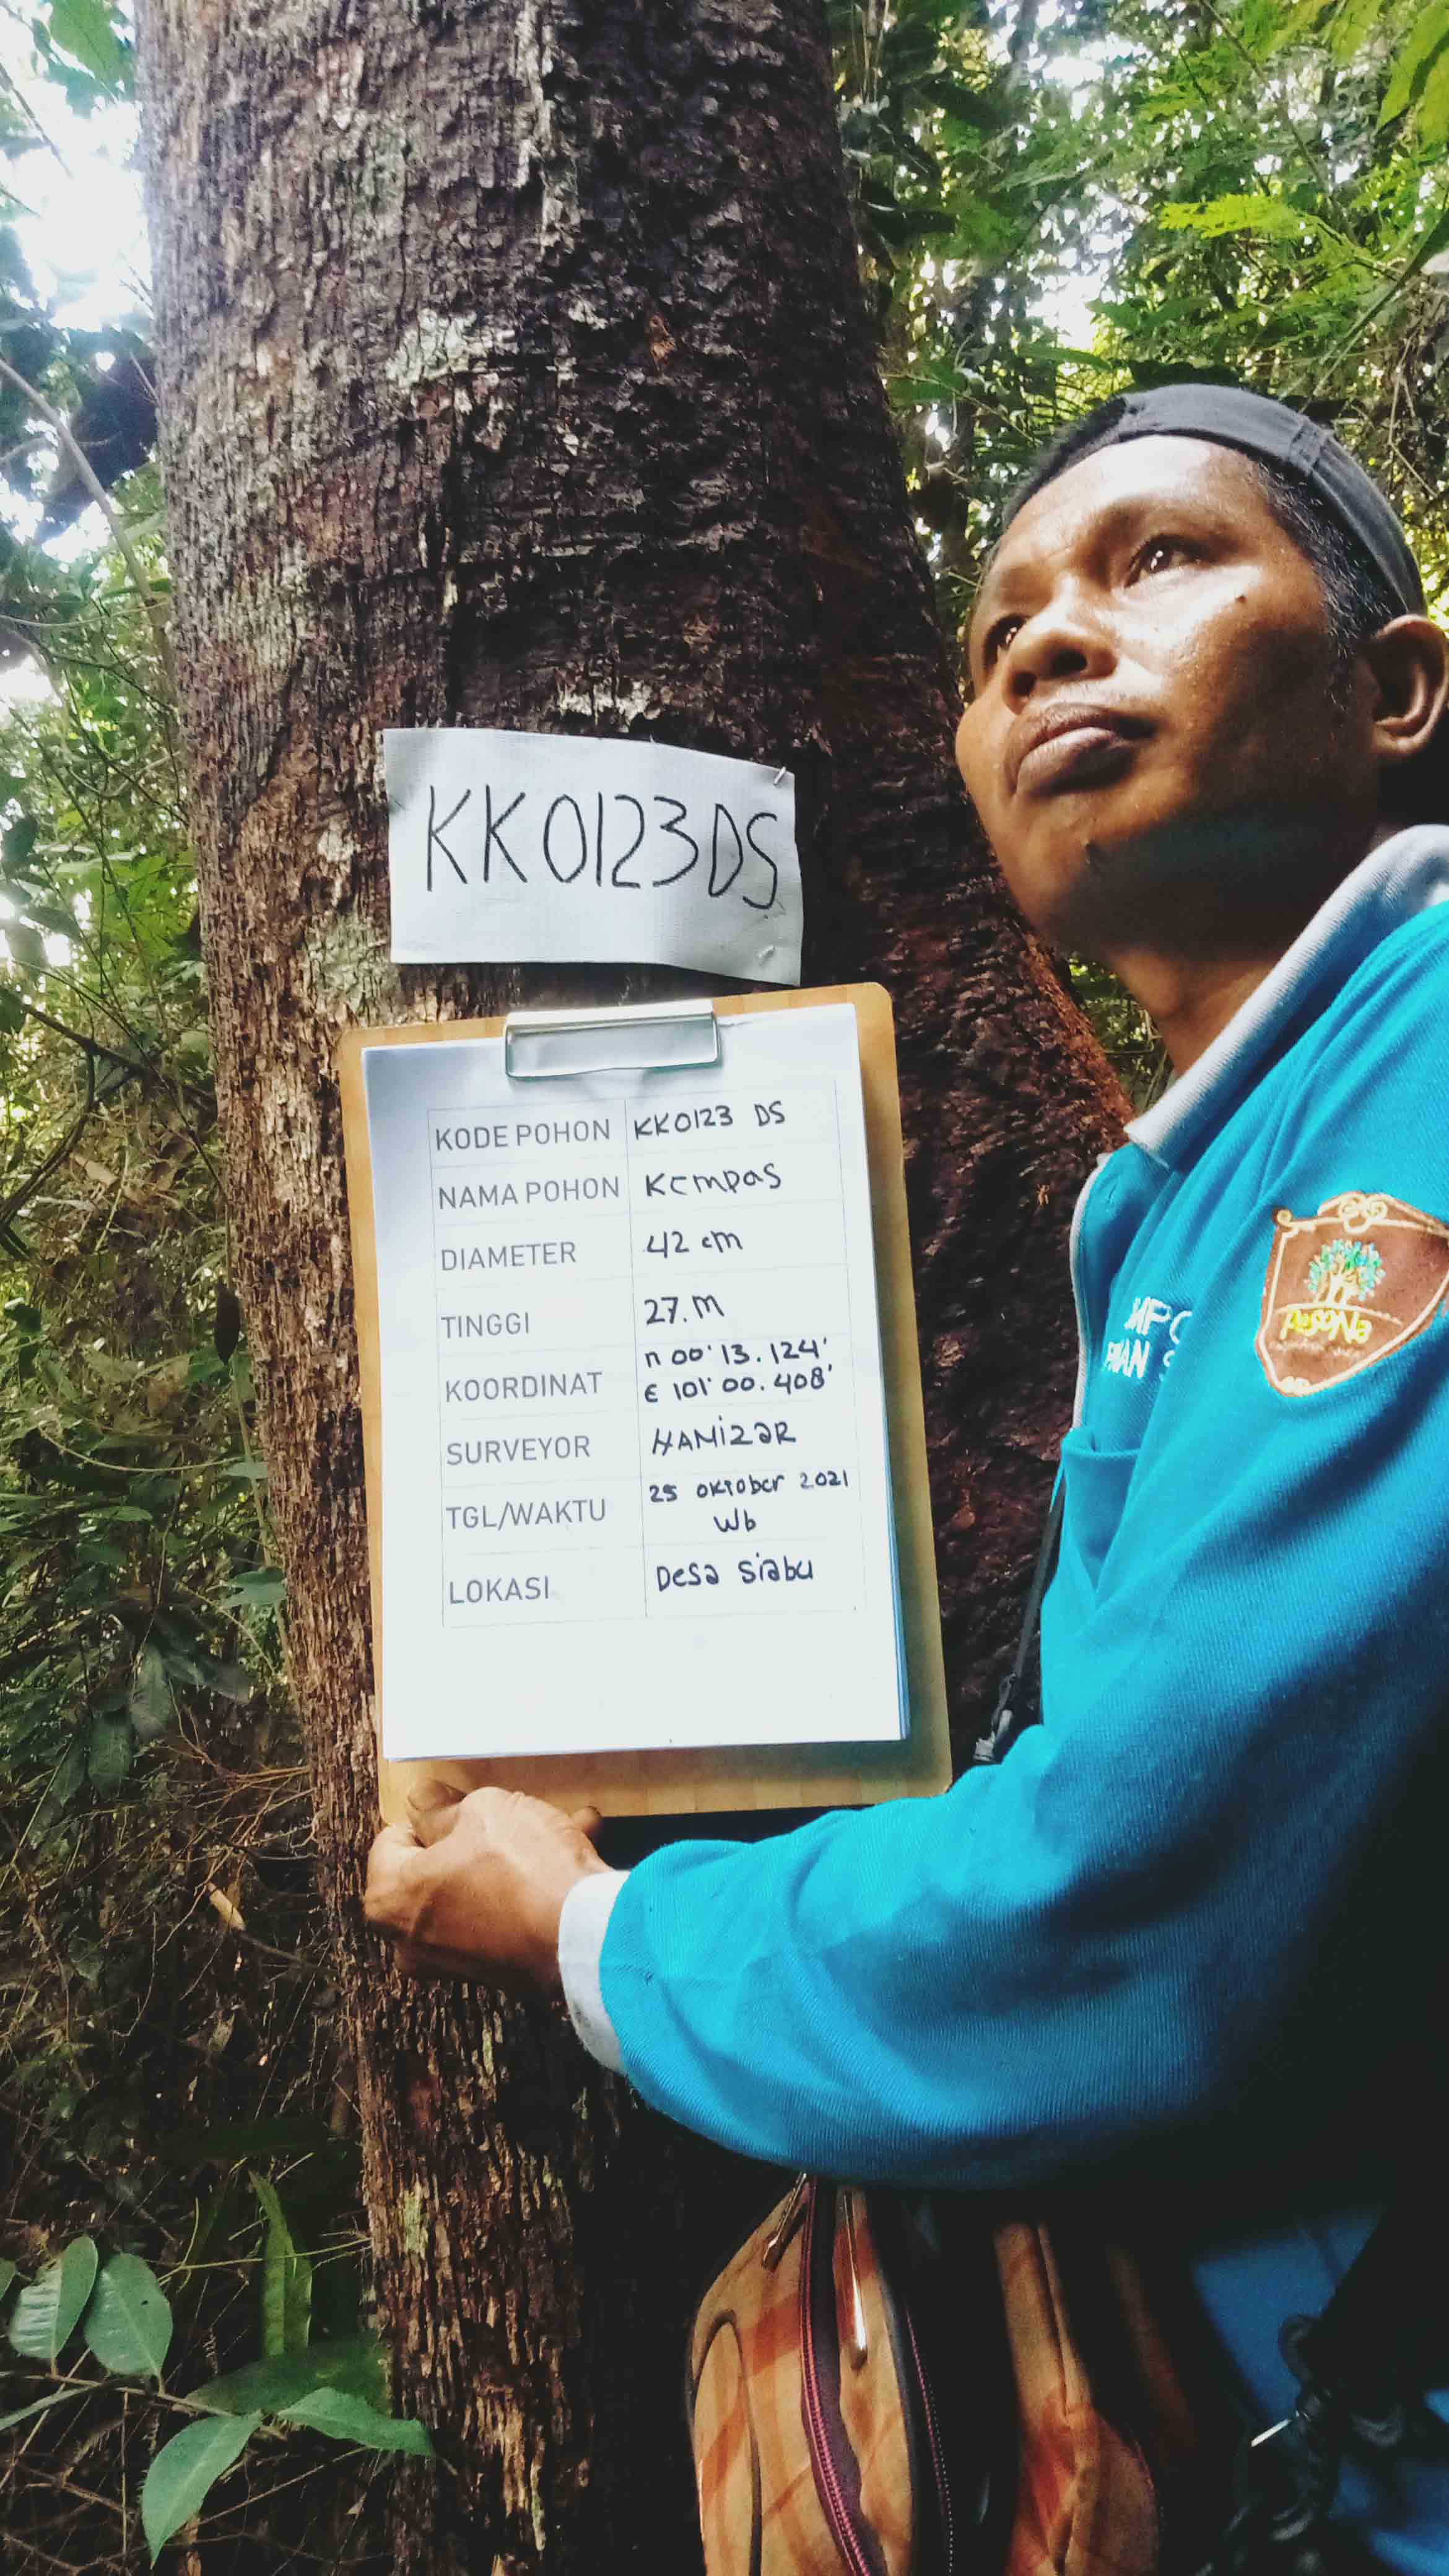 KK0123DS
KODE POHON KK0123 DS
NAMA POHON Kempas
DIAMETER 42 cm
TINGGI 27.M
KOORDINAT n 00' 13. 124'
E 101' 00. 408'
SURVEYOR HAMiZaR
TGL/WAKTU 25 oktober 2021
Wb
LOKASI Desa Siabu